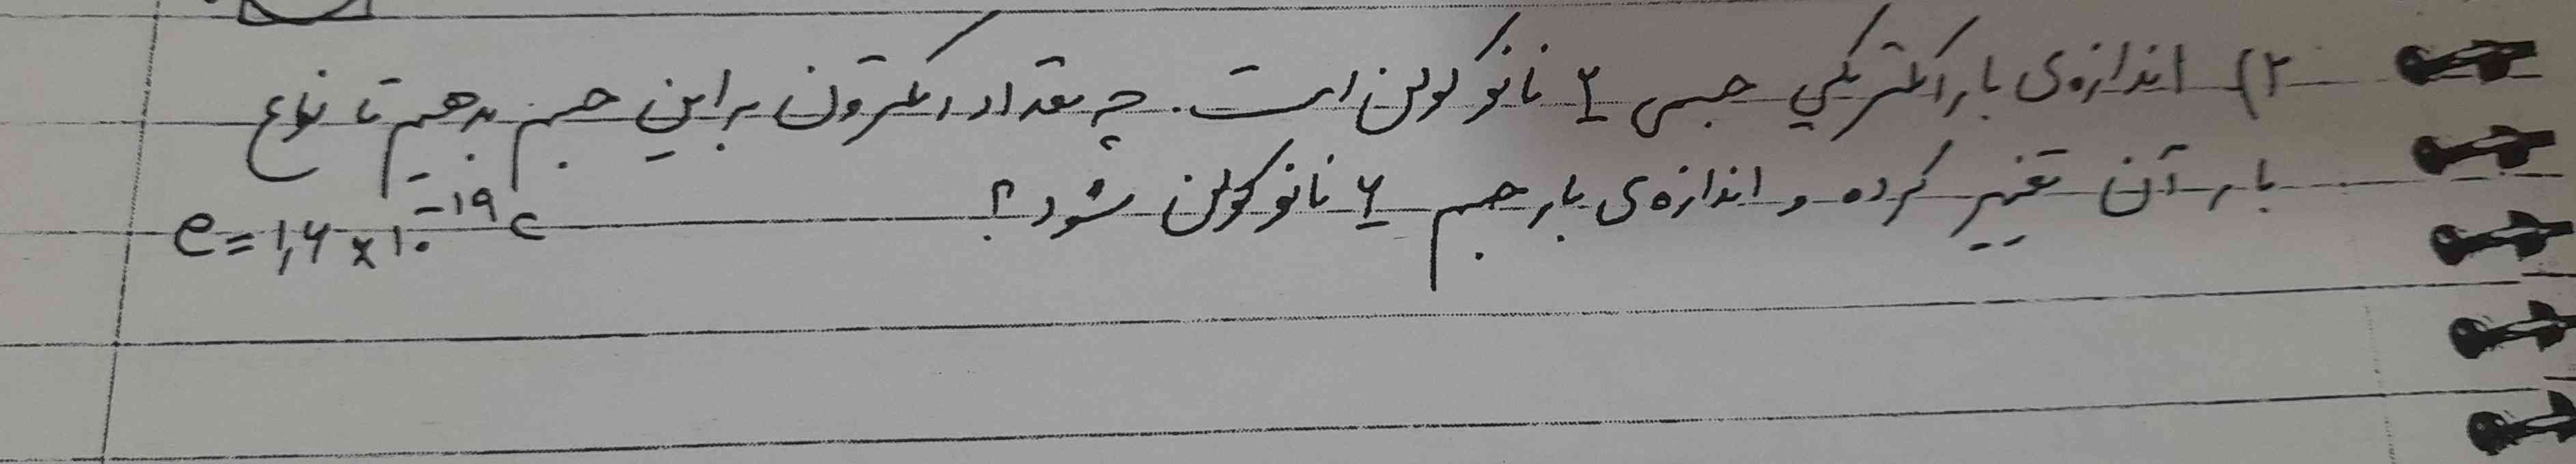 ۲) اندازه‌ی بار الکتریکی جسمی ۲ نانوکولن است. چه تعداد الکترون به این جسم بدهیم تا نوع
بار آن تغییر کرده و اندازه‌ی بار جسم ۶ نانوکولن شود؟ e = ۱,۶ × ۱۰⁻¹⁹ c